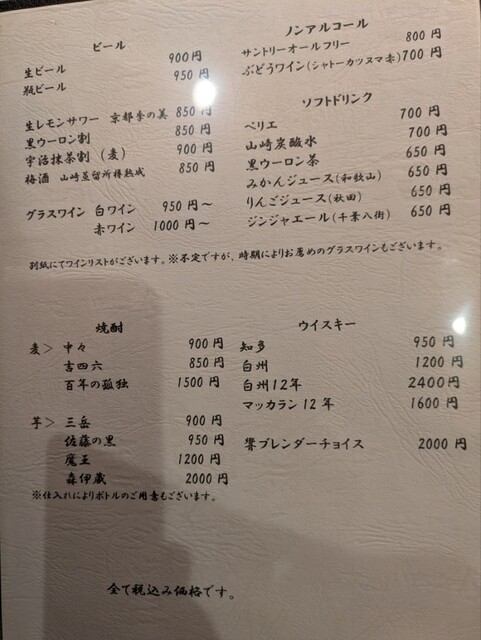 ビール
生ビール 900円
瓶ビール 950円
生レモンサワー 京都季の美 850円
黒ウーロン割 850円
宇治抹茶割（麦） 900円
梅酒 山崎蒸留所樽熟成 850円
グラスワイン 白ワイン 950円～
赤ワイン 1000円～
ノンアルコール
サントリーオールフリー 800円
ぶどうワイン(シャトーカツヌマ赤) 700円
ソフトドリンク
ペリエ 700円
山崎炭酸水 700円
黒ウーロン茶 650円
みかんジュース(和歌山) 650円
りんごジュース(秋田) 650円
ジンジャエール(千葉八街) 650円
別紙にてワインリストがございます。※不定ですが、時期によりお薦めのグラスワインもございます。
焼酎
麦＞ 中々 900円
吉四六 850円
百年の孤独 1500円
芋＞ 三岳 900円
佐藤の黒 950円
魔王 1200円
森伊蔵 2000円
※仕入れによりボトルのご用意もございます。
ウイスキー
知多 950円
白州 1200円
白州12年 2400円
マッカラン12年 1600円
響ブレンダーチョイス 2000円
全て税込み価格です。